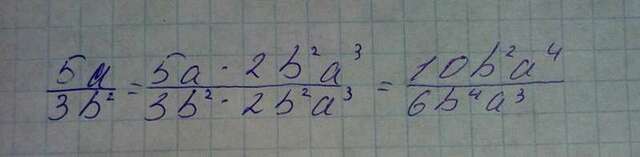 5a/3b² = 5a · 2b²a³/3b² · 2b²a³ = 10b²a⁴/6b⁴a³